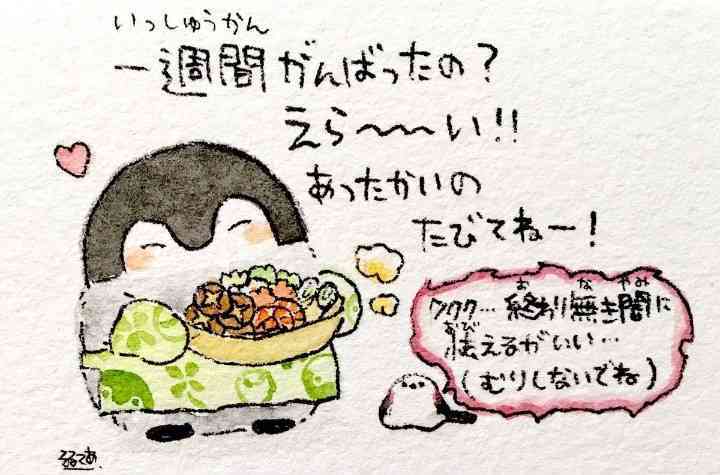 いっしゅうかん
一週間がんばったの？
えら〜〜い!!
あったかいの
たびてねー！
お な やみ
ククク… 終わり無き闇に
おび
怯えるがいい…
(むりしないでね)
るるてあ